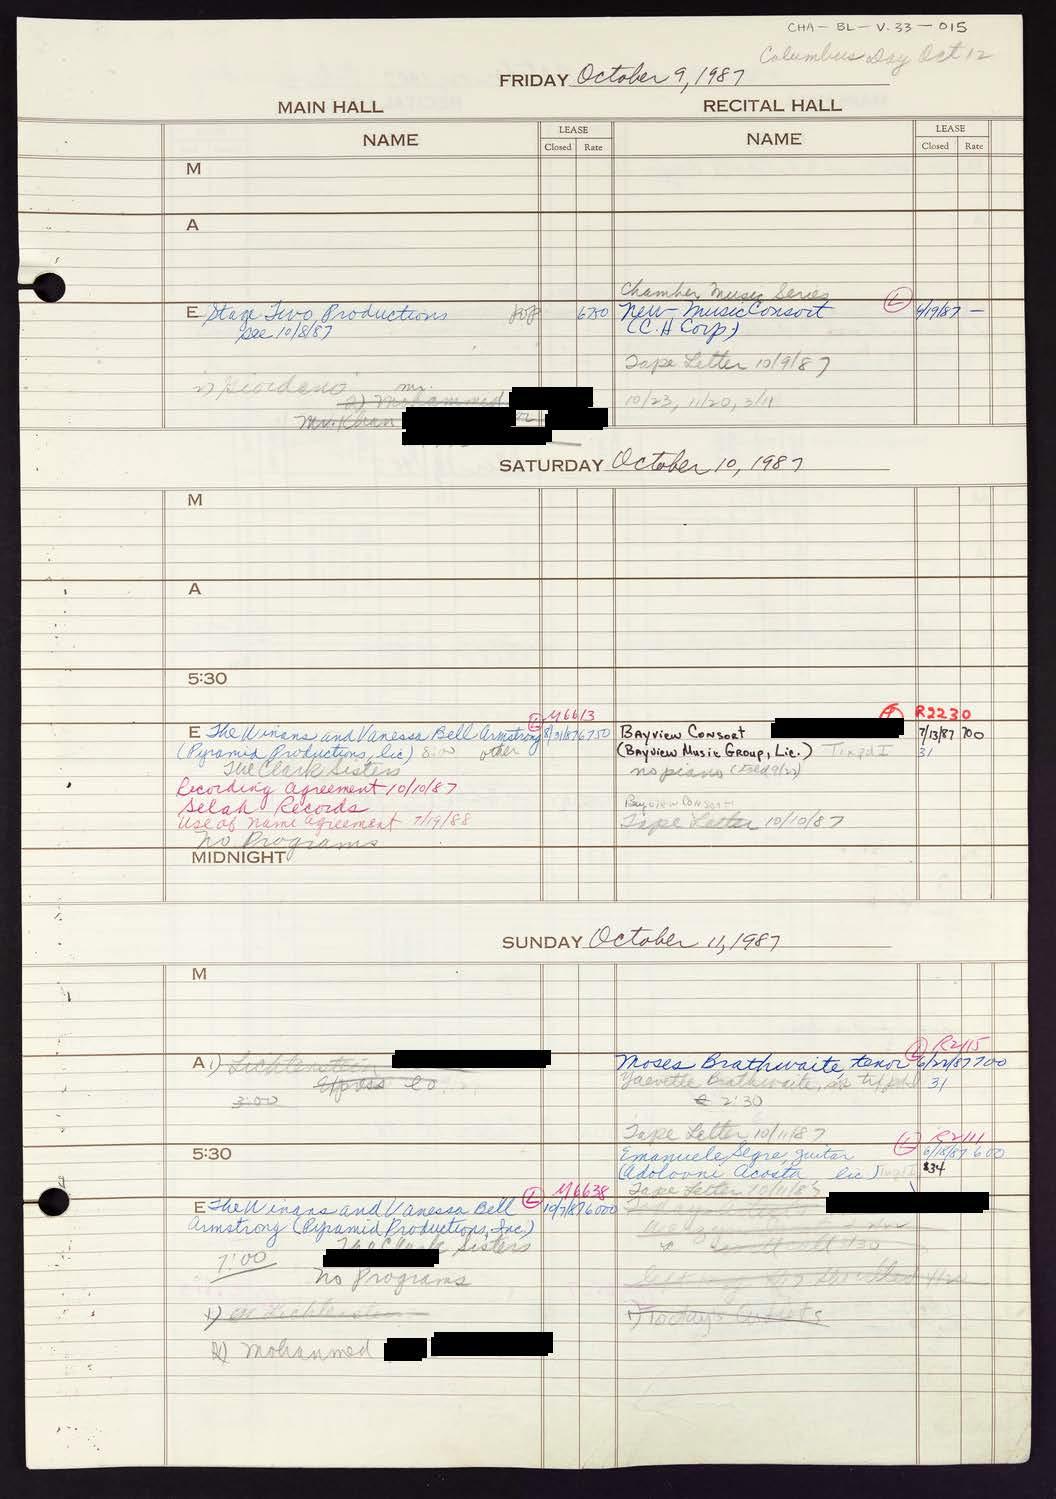 CHA-BL-V.33-015
Columbus Day Oct 12
FRIDAY October 9, 1987
MAIN HALL
RECITAL HALL
NAME
LEASE
Closed Rate
NAME
LEASE
Closed Rate
M
A
E Stage Two Productions
see 10/8/87
pop
Chamber Music Series
New-Music Consort
(C.H Corp)
L
9/19/87 —
Tape Letter 10/9/87
10/23, 11/20, 3/11
Giordano
Mr.
2) Mohammed
Mr. Khan
SATURDAY October 10, 1987
M
A
5:30
L M6613
E The Winans and Vanessa Bell Armstrong 8/31/87 6750
(Pyramid Productions, lic) 8:00 other
The Clark Sisters
Recording Agreement 10/10/87
Selah Records
Use of Name Agreement 7/19/88
No Programs
MIDNIGHT
R2230
Bayview Consort
7/13/87 700
(Bayview Music Group, Lic.)
31
no piano
Bayview Consort
Tape Letter 10/10/87
SUNDAY October 11, 1987
M
A 1) Lichtenstein
3:00
L R2115
Moses Brathwaite, tenor 6/22/87 700
Brathwaite,
31
2:30
Tape Letter 10/11/87
5:30
L R2111
Emanuele Segre, guitar 6/18/87 600
Acosta lic)
$34
Tape Letter 10/11/87
L M6638
E The Winans and Vanessa Bell 10/7/87 6000
Armstrong (Pyramid Productions, Inc.)
The Clark Sisters
7:00
No Programs
1) Lichtenstein
2) Mohammed
1) Today's Artists